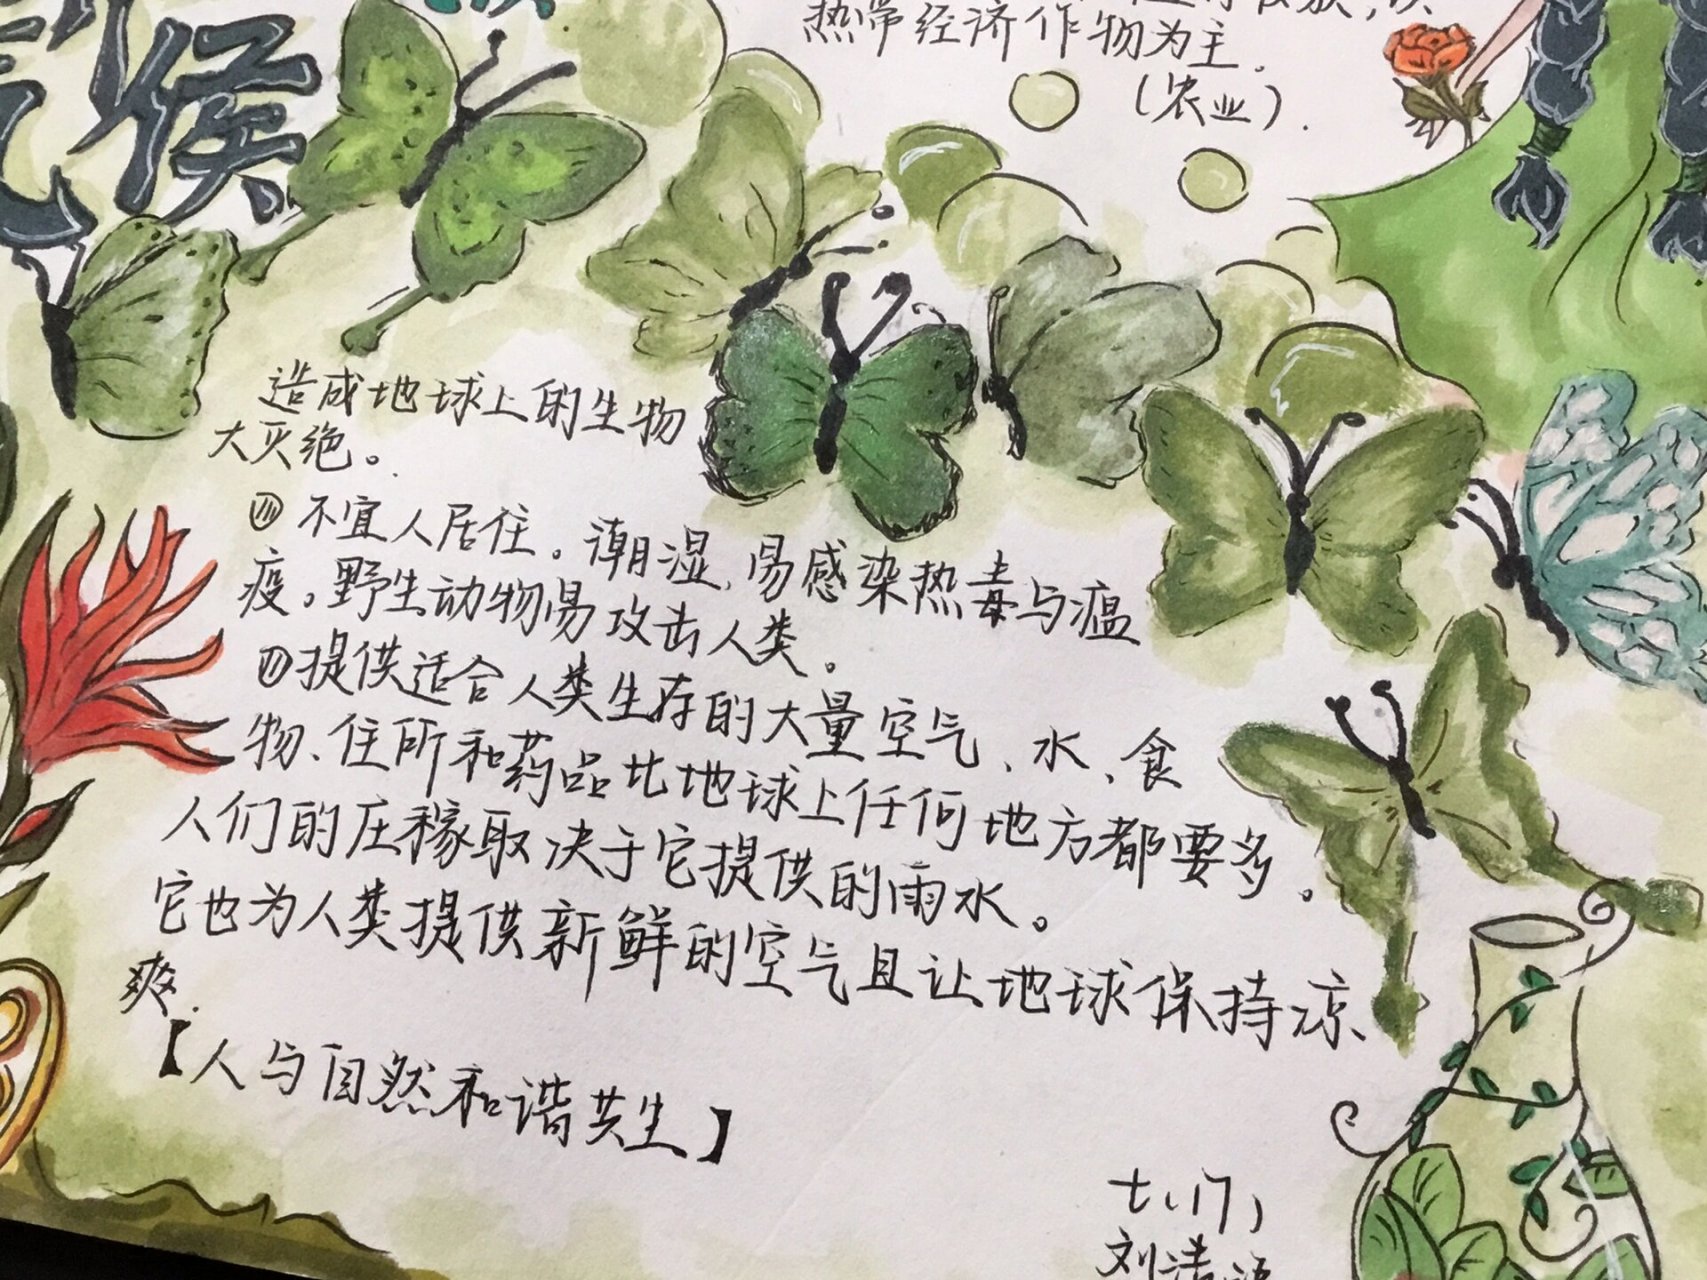 热带经济作物为主.
(农业).
候
造成地球上的生物
大灭绝。
Ⅶ 不宜人居住。潮湿,易感染热毒与瘟
疫。野生动物易攻击人类。
提供适合人类生存的大量空气、水、食
物、住所和药品比地球上任何地方都要多。
人们的庄稼取决于它提供的雨水。
它也为人类提供新鲜的空气且让地球保持凉
爽.
【人与自然和谐共生】
七、(7)
刘浩